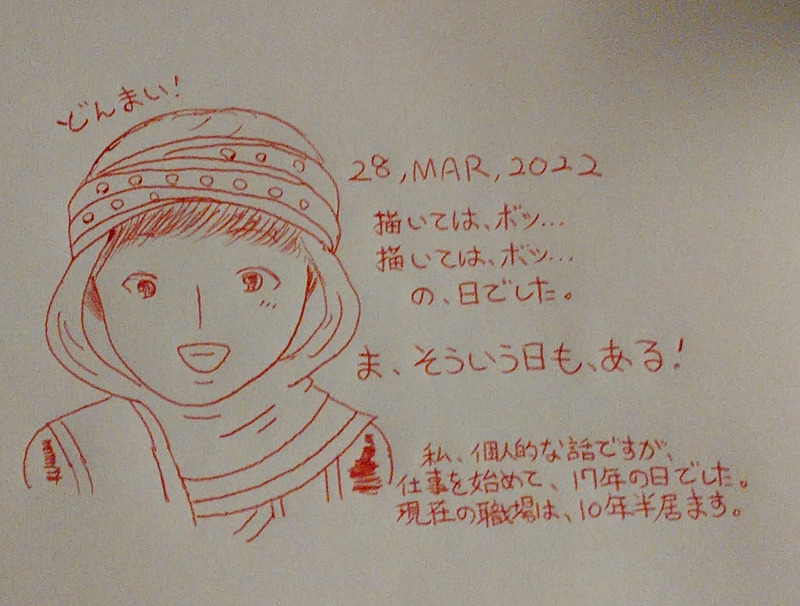 どんまい!
28,MAR,2022
描いては、ボッ…
描いては、ボッ…
の、日でした。
ま、そういう日も、ある!
私、個人的な話ですが、
仕事を始めて、17年の日でした。
現在の職場は、10年半居ます。